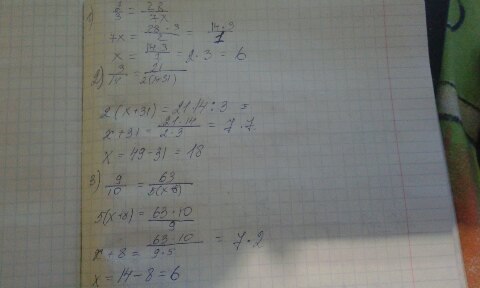 1) 2/3 = 28/7x
7x = 28·3/2 = 14·3/1
x = 14·3/7 = 2·3 = 6
2) 3/14 = 21/2(x+31)
2(x+31) = 21·14:3 =
x+31 = 21·14/2·3 = 7·7
x = 49-31 = 18
3) 9/10 = 63/5(x+8)
5(x+8) = 63·10/9
x+8 = 63·10/9·5 = 7·2
x = 14-8 = 6